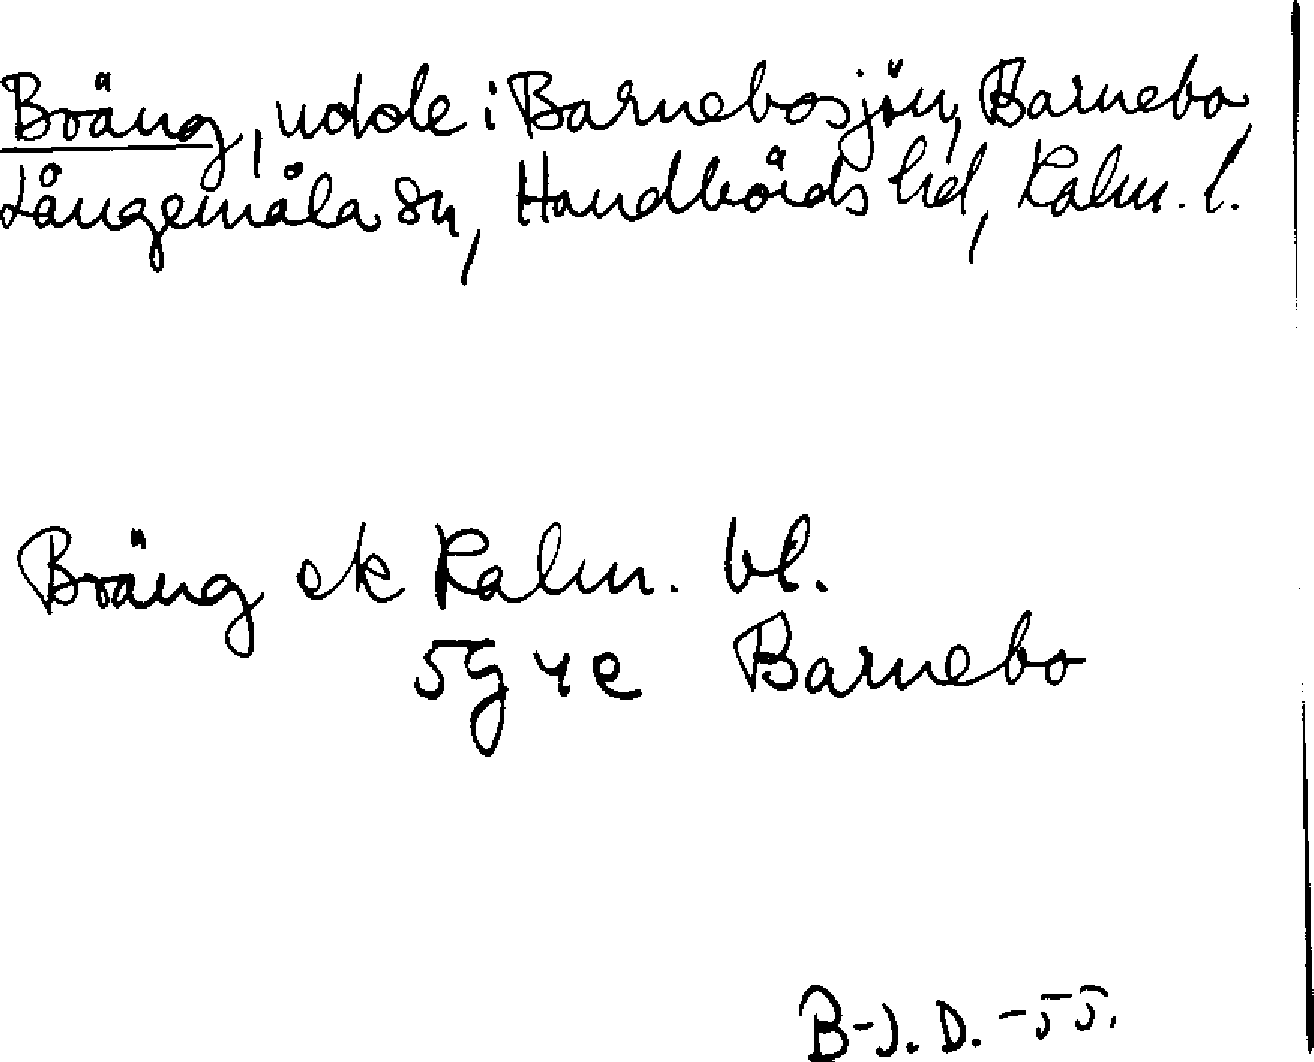 Bräng, udde i Barnebosjön, Barnebo,
Långemåla sn, Handbörds hd, Kalm. l.
Bräng ek Kalm. bl.
5g 4e Barnebo
B-J. D. -55.